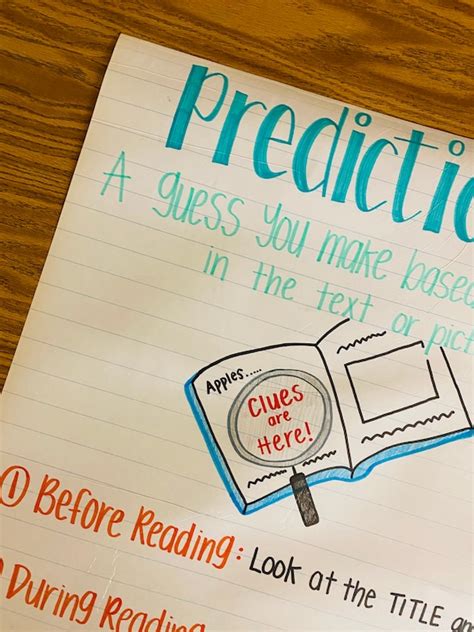 Predictio
A guess you make based
in the text or pict
Apples.....
Clues
are
Here!
① Before Reading: Look at the TITLE an
During Reading